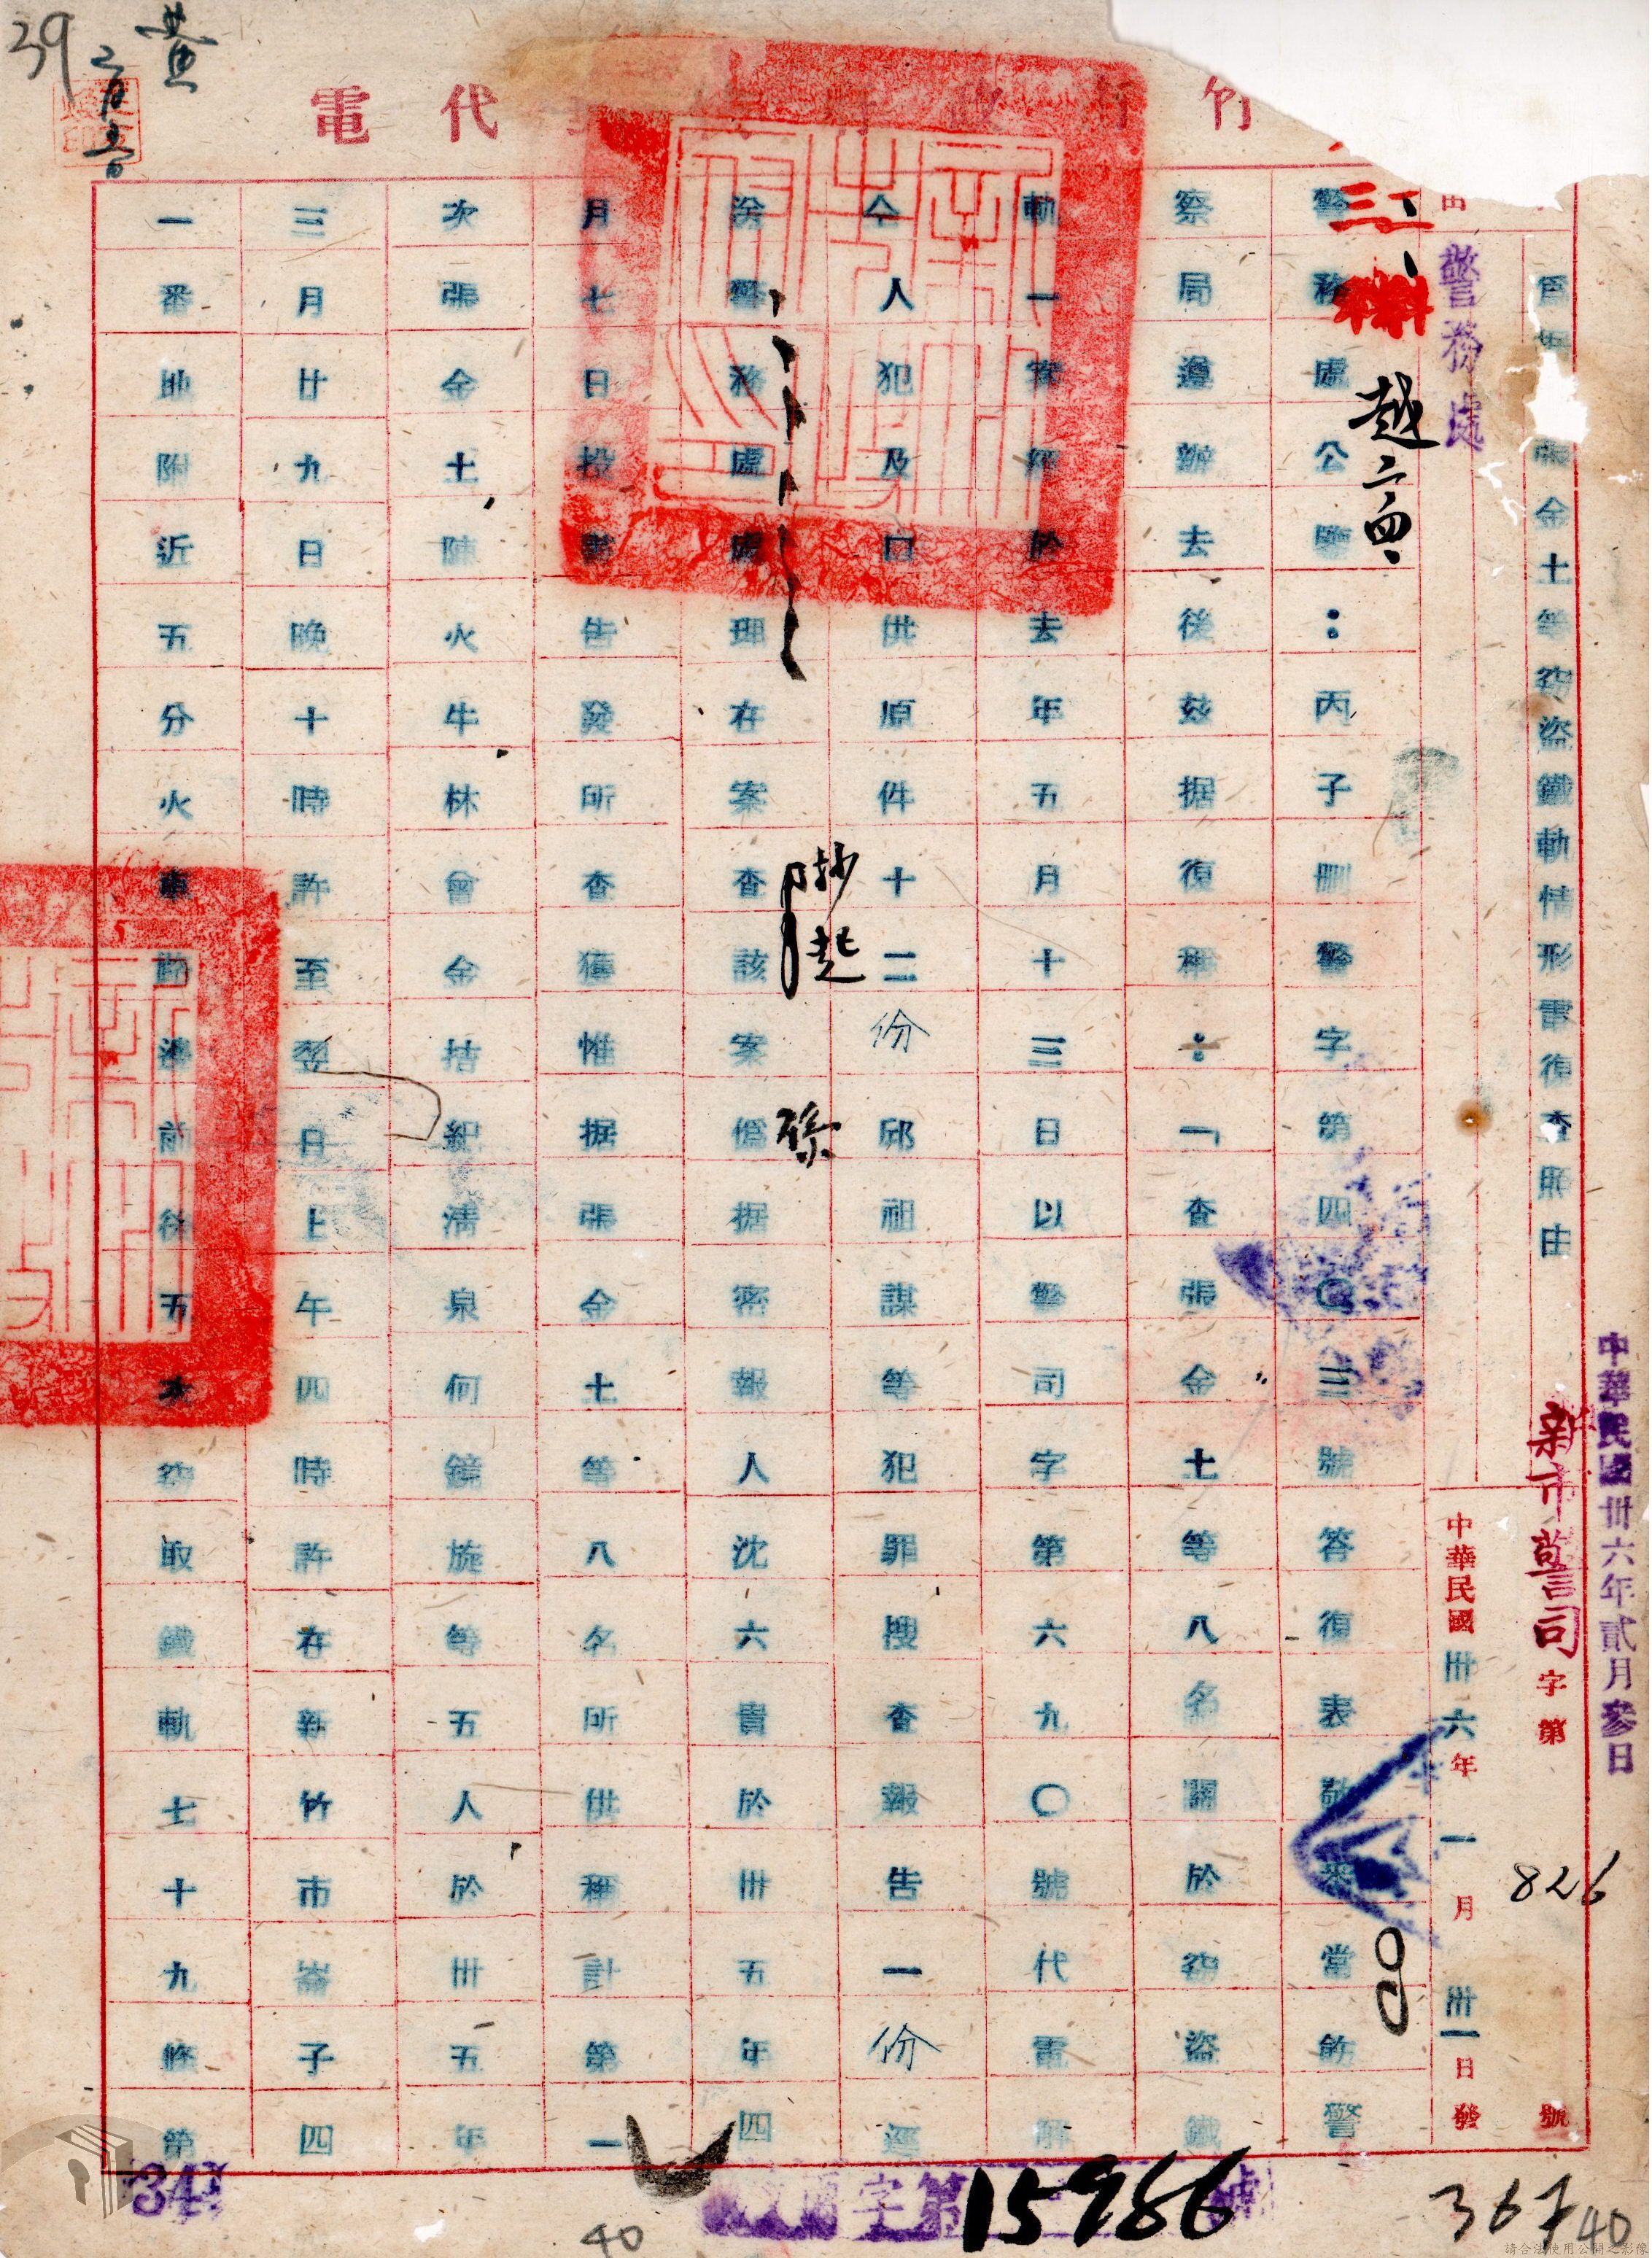 竹市政府 代電
中華民國卅六年貳月參日
新市警司字第826號
張金土等竊盜鐵軌情形電復查照由
中華民國卅六年一月卅一日發
警務處
警務處公鑒：丙子刪警字第四〇三號答復表敬悉當飭警
察局遵辦去後玆据復稱：「查張金土等八名關於竊盜鐵
軌一案經於去年五月十三日以警司字第六九〇號代電解
人犯及口供原件十二份邱祖謀等犯罪搜查報告一份逕
警務處處理在案查該案係据密報人沈六貴於卅五年四
月七日投書告發所查獲惟据張金土等八名所供稱計第一
次張金土陳火牛林曾金桔紀清泉何鏡旋等五人於卅五年
三月廿九日晚十時許至翌日上午四時許在新竹市崙子四
一番地附近五分火車路邊前後五次竊取鐵軌七十九條第
39
黃
抄
起
係
字第15986號
347
40
367
40
請合法使用公開之影像